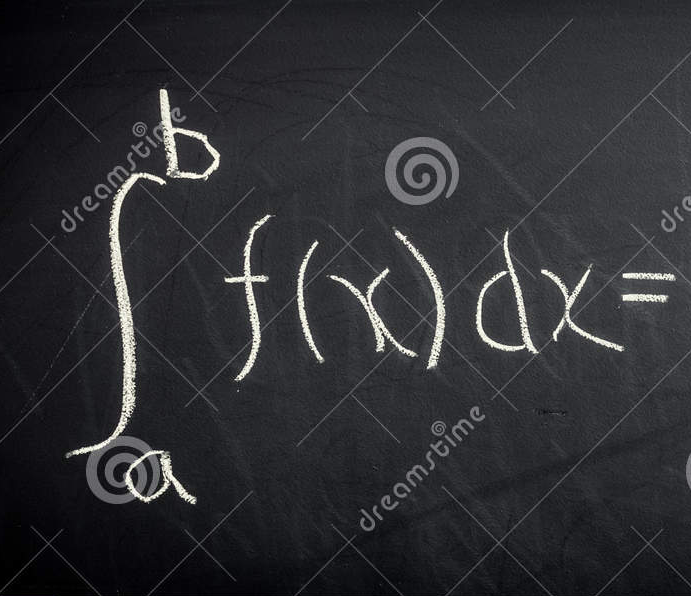 ∫_a^b f(x) dx =
dreamstime
dreamstime
dreamstime